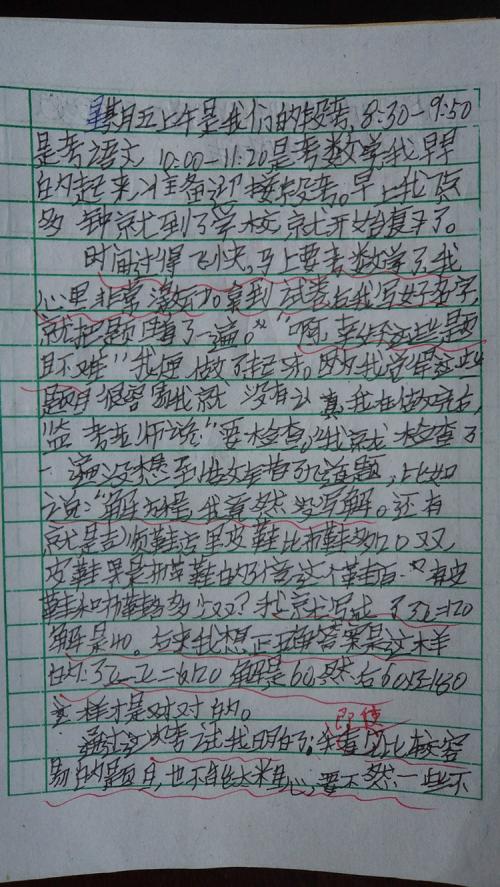 星期五上午是我们的段考，8:30-9:50
是考语文 10:00-11:20是考数学,我早早
的起来,准备迎接段考。早上我7点
多钟就到了学校,就开始复习了。
时间过得飞快,马上要考数学了,我
心里非常激动,拿到试卷后我写好名字,
就把题看了一遍。"啊,幸好这些题
目不难"我便做了起来。因为我觉得这些
题目很容易我就没有认真,我在做好后,
监考老师说:"要检查。"我就检查了
一遍没想到我还错了几道题,比如
说:"解方程,我竟然没写解。还有
就是吉顺鞋店里皮鞋比布鞋多120双,
皮鞋果是布鞋的3倍这个鞋店 有皮
鞋和布鞋多少双?我就写成了3x=120
解是40。后来我想正确答案是这样
的:3x-x=120 解是60,然后60x3=180
这样才是对对的。
即使
通过这次考试我明白了:看见比较容
易的题目,也不能太粗心,要不然一些不